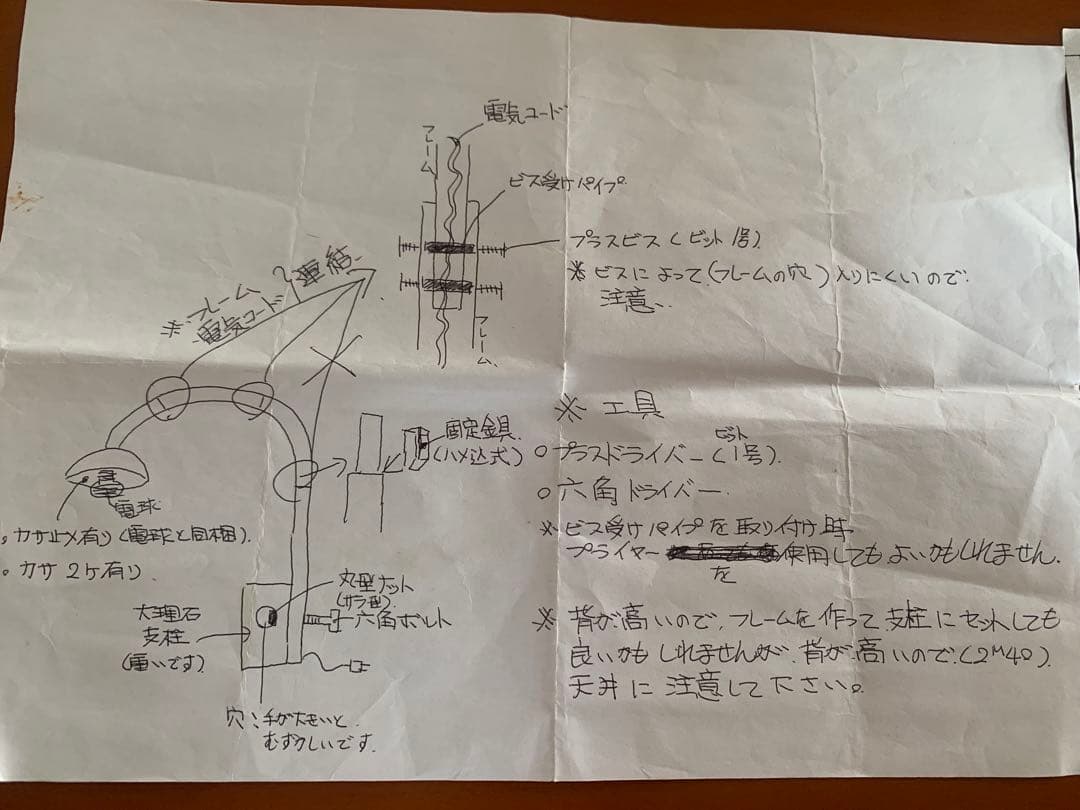 電気コード
フレーム
ビス受けパイプ
プラスビス(ビット1号)
※ビスによって(フレームの穴)入りにくいので
注意、
フレーム、
※フレーム
電気コード
連結、
※工具
○プラスドライバー(ビット1号).
○六角ドライバー
※ビス受けパイプを取り付け時
プライヤーを使用してもよいかもしれません.
※背が高いので、フレームを作って支柱にセットしても
良いかもしれませんが、背が高いので、(2M40)
天井に注意して下さい。
固定金具
(ハメ込式)
電球
○カサ止メ有り(電球と同梱).
○カサ2ケ有り.
丸型ナット
(サラ型)
六角ボルト
大理石
支柱
(重いです)
穴:手が大きいと
むずかしいです.